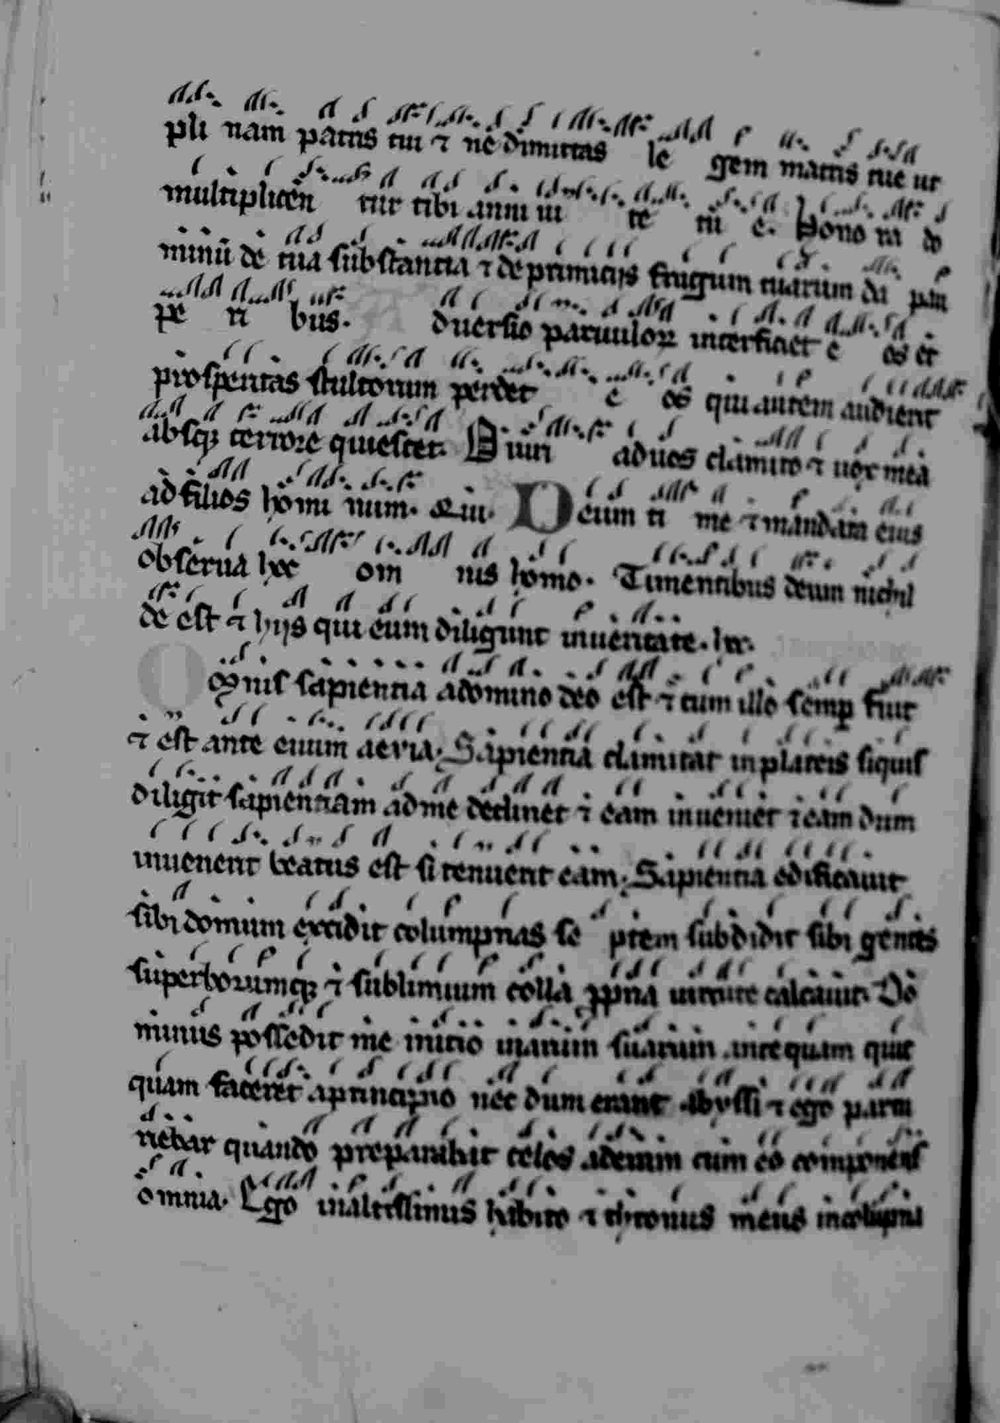 pli nam patris tui ⁊ ne dimittas le gem matris tue ut
multiplicen tur tibi anni ui te tu e. Hono ra do
minū de tua substantia ⁊ de primicijs frugum tuarum da pau
pe ri bus. duersio paruuloꝝ interficiet e os et
prosperitas stultorum perdet e os qui autem audierit
absqꝫ terrore quiescet. O uiri ad uos clamito ⁊ uox mea
ad filios homi num. O ui. Deum ti me ⁊ mandata eius
obserua hoc om nis homo. Timentibus deum nichil
de est ⁊ hijs qui eum diligunt in ueritate. hoc.
Omnis sapientia a domino deo est ⁊ cum illo semꝑ fuit
⁊ est ante euum aeuia. Sapientia clamitat in plateis siquis
diligit sapientiam ad me declinet ⁊ eam inueniet ⁊ eam dum
inuenerit beatus est si tenuerit eam. Sapientia edificauit
sibi domum excidit columpnas se ptem subdidit sibi gentes
superborumqꝫ ⁊ sublimium colla ꝓpria uirtute calcauit. Do
minus possedit me inicio uiarum suarum antequam quic
quam faceret a principio nec dum erant abyssi ⁊ ego partu
riebar quando preparabat celos aderam cum eo componens
omnia. Ego in altissimis habito ⁊ thronus meus in columpna